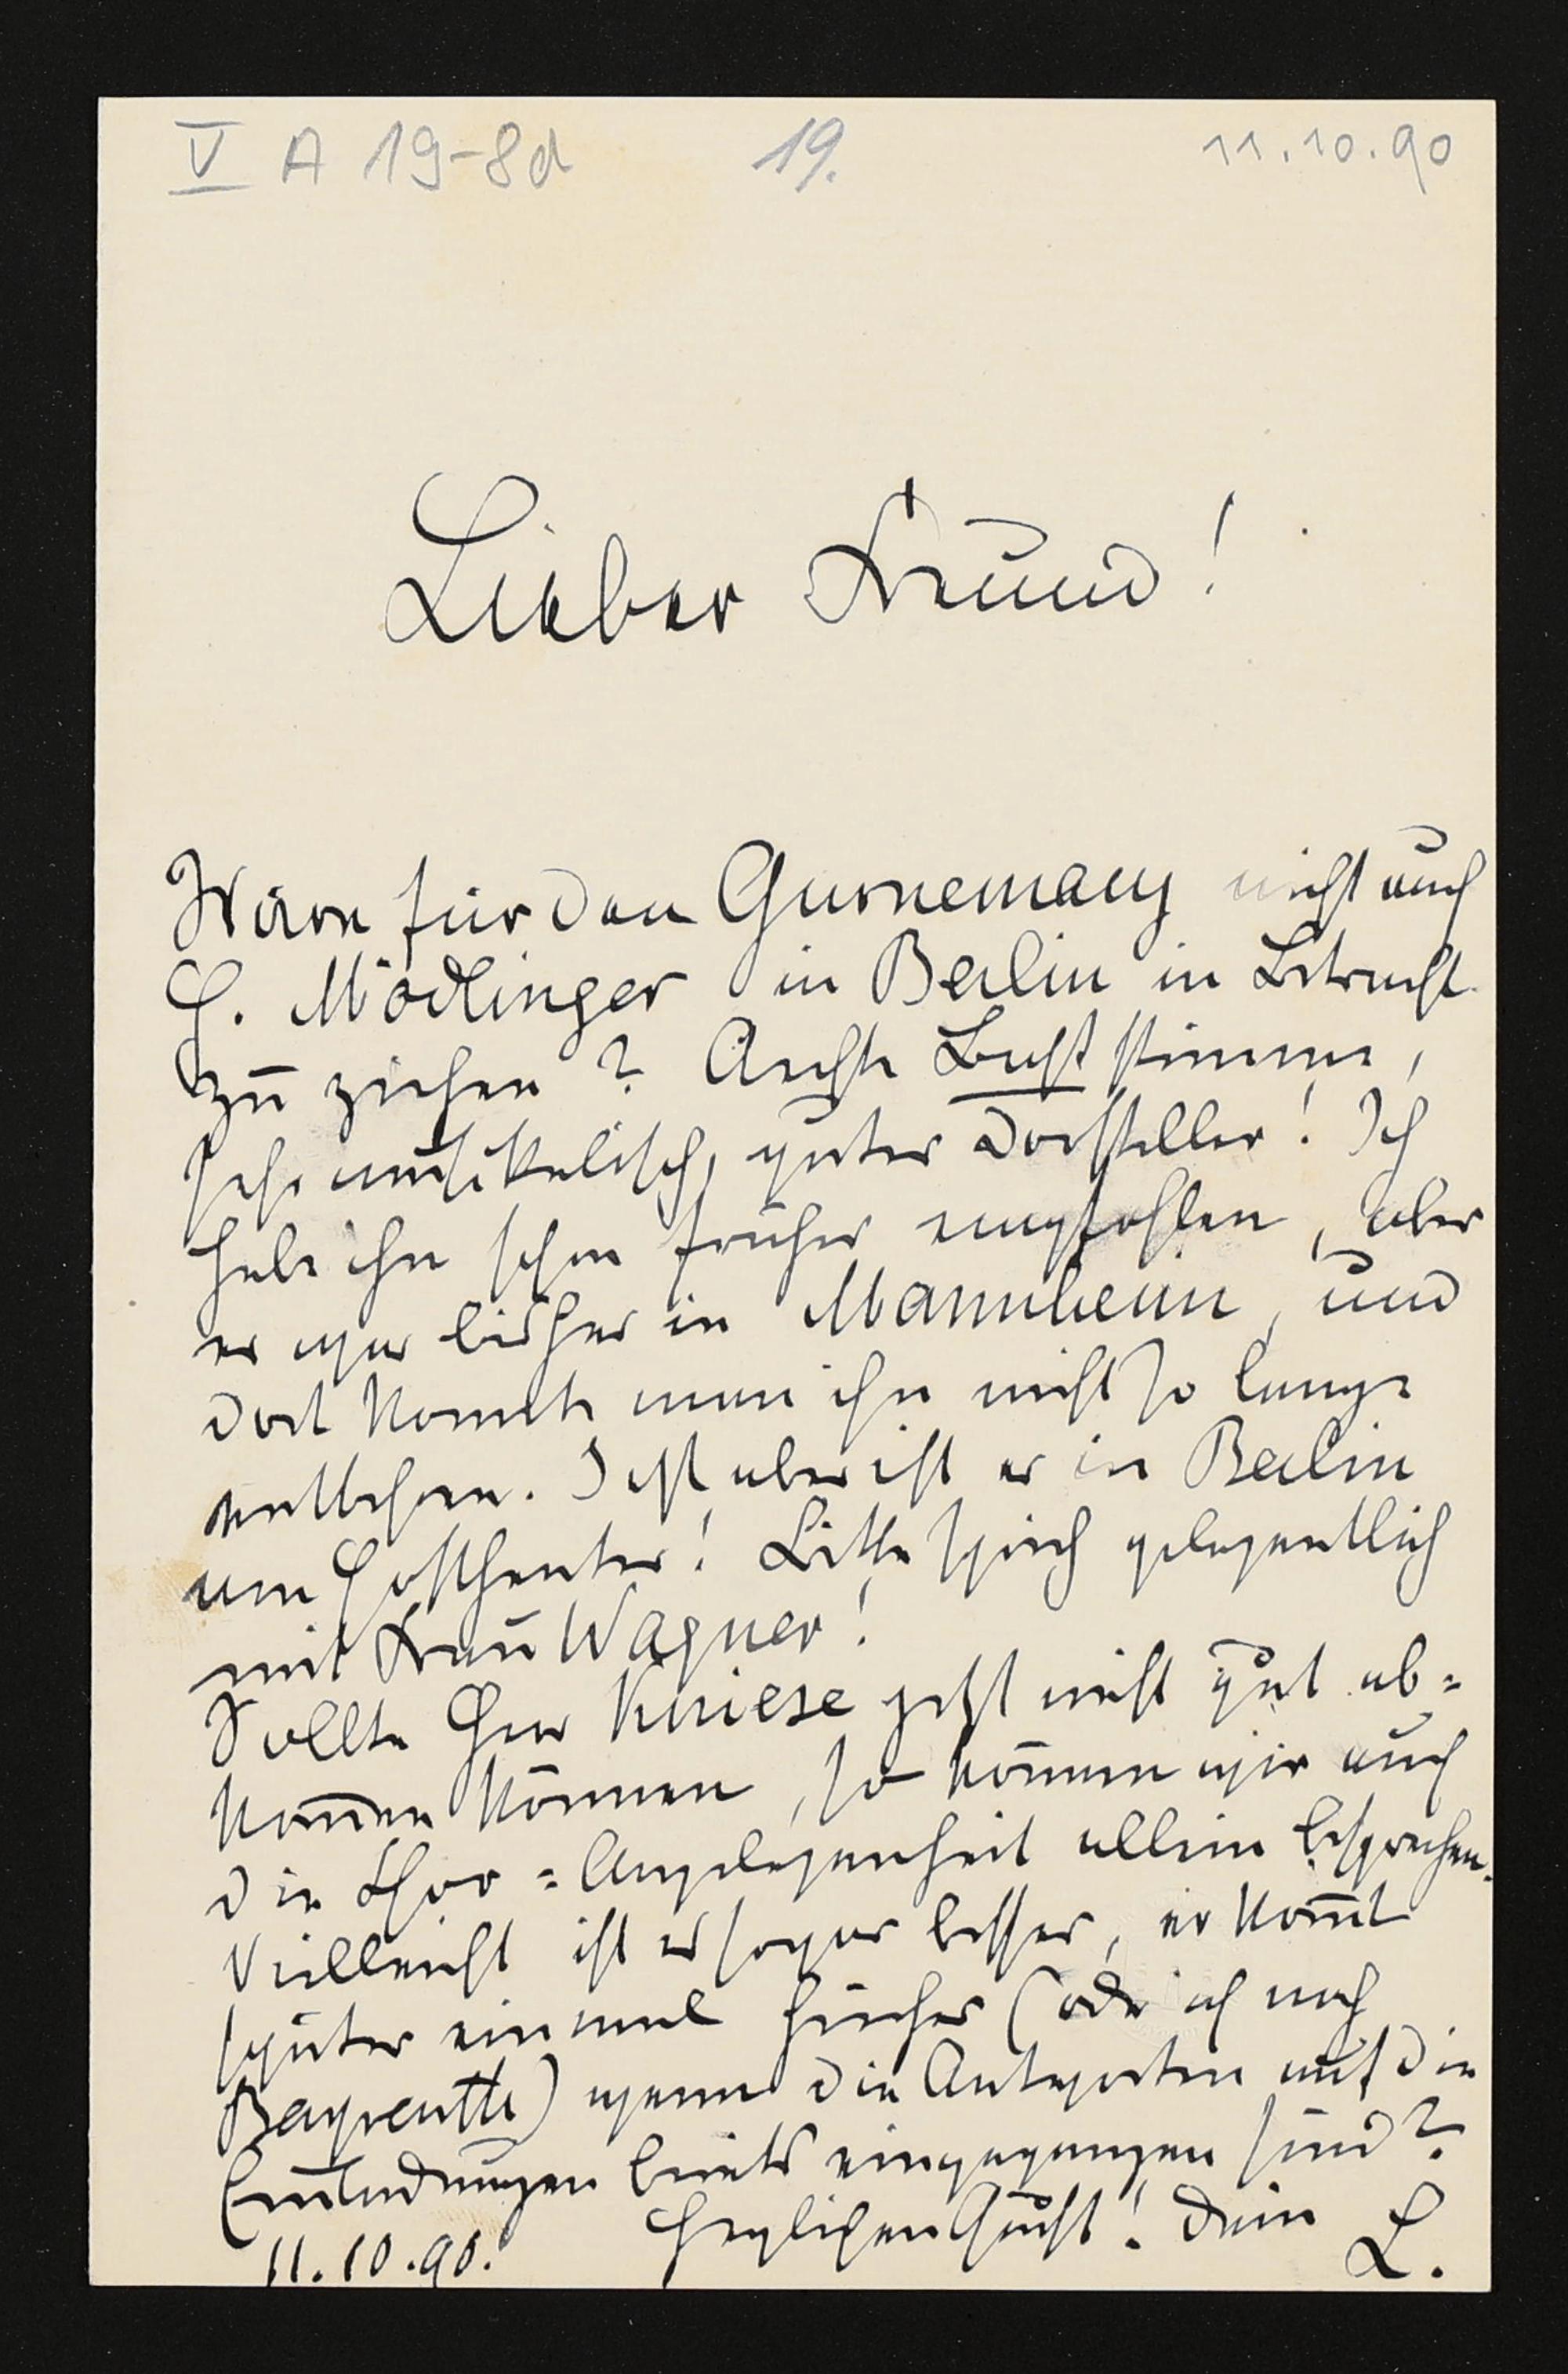 V A 19-8d 19. 11.10.90
Lieber Freund!
Wäre für den Gurnemanz nicht auch
H. Mödlinger in Berlin in Betracht
zu ziehen? Aechte Baßstimme,
sehr musikalisch, guter Darsteller! Ich
habe ihn schon früher empfohlen, aber
er war bisher in Mannheim, und
dort konnte man ihn nicht so lange
entbehren. Jetzt aber ist er in Berlin
am Hoftheater! Bitte sprich gelegentlich
mit Frau Wagner!
Sollte Herr Kniese jetzt nicht gut ab-
kom̅en können, so können wir auch
die Chor-Angelegenheit allein besprechen.
Vielleicht ist es sogar besser, er kom̅t
später einmal hierher (oder ich nach
Bayreuth) wenn die Antworten auf die
Einladungen bereits eingegangen sind?
Herzlichen Gruß! Dein L.
11.10.90.